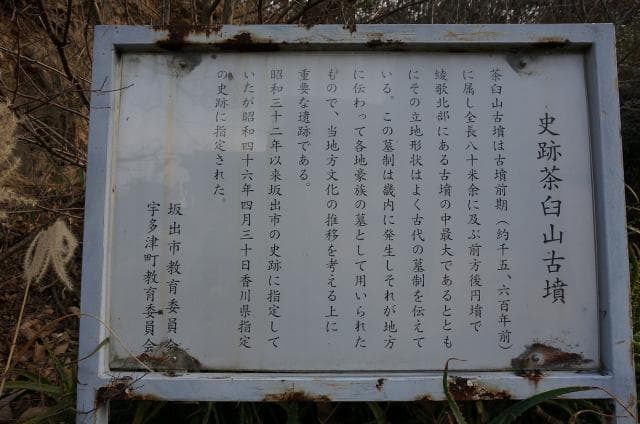 史跡茶臼山古墳
茶臼山古墳は古墳前期（約千五、六百年前）
に属し全長八十米余に及ぶ前方後円墳で
綾歌北部にある古墳の中最大であるととも
にその立地形状はよく古代の墓制を伝えて
いる。この墓制は畿内に発生しそれが地方
に伝わって各地豪族の墓として用いられた
もので、当地方文化の推移を考える上に
重要な遺跡である。
昭和三十二年以来坂出市の史跡に指定して
いたが昭和四十六年四月三十日香川県指定
の史跡に指定された。
坂出市教育委員会
宇多津町教育委員会